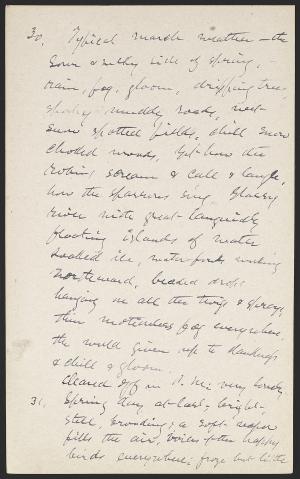 30. Typical march weather — the
sour & sulky side of spring, —
rain, fog, gloom, dripping trees,
muddy roads, wet
snow spotted fields, chill snow
choked woods. Yet how the
robins scream & call & laugh,
how the sparrows sing. Glassy
river with great languidly
floating islands of water
soaked ice, water fowls working
northward, beaded drops
hanging on all the twigs & sprays,
thin motionless fog everywhere
the world given up to dampness
& chill & gloom.
Cleared off in P. M.; very lovely.
31. Spring day at last; bright,
still, brooding; a soft vapor
fills the air, voices of the happy
birds everywhere; froze but little